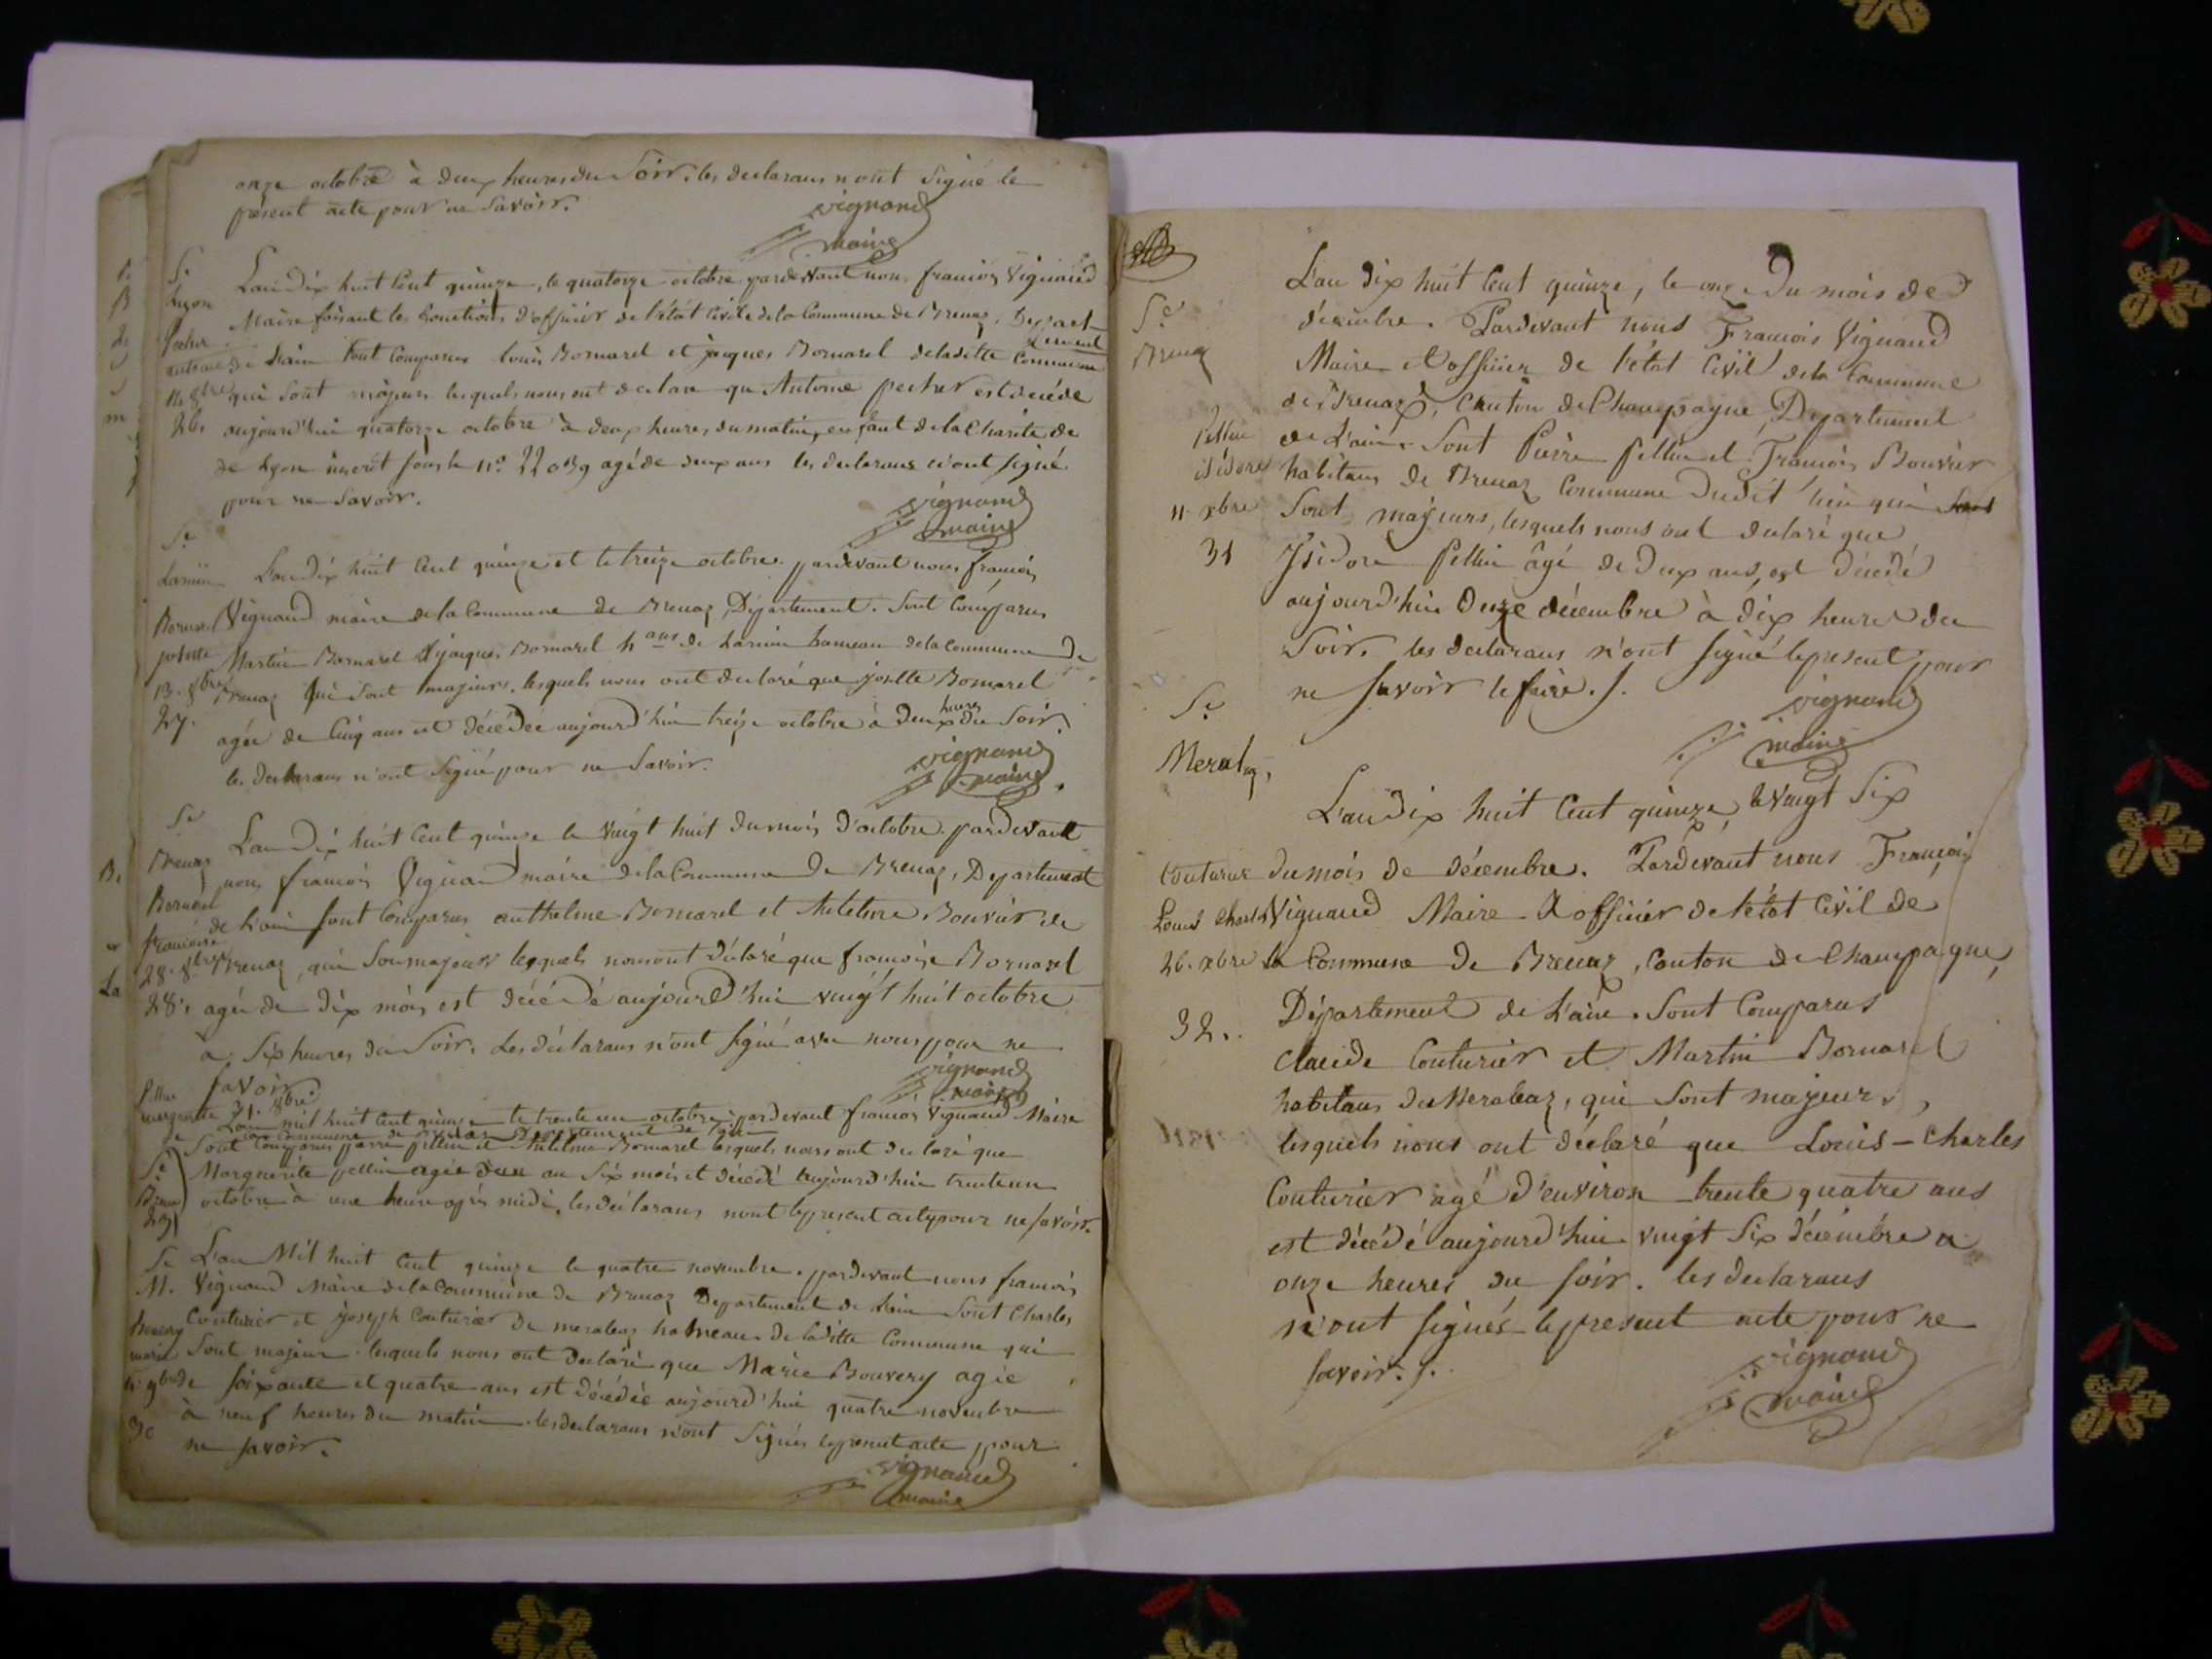 onze octobre à deux heures du Soir. les declarans n'ont Signé le
présent acte pour ne Savoir.
vignaud
maire
Se
Lyon
pecher
antoine
14. 8bre
26.
L'an dix huit Cent quinze, le quatorze octobre pardevant nous francois Vignaud
Maire faisant les fonctions d'officier de l'état Civile de la Commune de Brenaz, Depart
de Lain sont Comparus louis Bornarel et jacques Bornarel de ladite Commune
qui Sont majeurs lesquels nous ont declaré que Antoine pecher est décédé
aujourd'hui quatorze octobre à deux heures du matin, enfant de la Charité de
de Lyon inscrit sous le n° 22059 agé de deux ans les declarans n'ont signé
pour ne Savoir.
vignaud
maire
Se
Bornarel
josette
13. 8bre
27.
L'an dix huit Cent quinze et le treize octobre. pardevant nous francois
Vignaud maire de la Commune de Brenaz, Département. Sont Comparus
Martin Bornarel et jacques Bornarel hans de hameau de la Commune de
Brenaz qui Sont majeurs, lesquels nous ont declaré que josette Bornarel
agée de Cinq ans est décédée aujourd'hui treize octobre à deux heures du Soir,
les declarans n'ont Signé pour ne Savoir.
vignaud
maire
Se
Brenaz
Bornarel
francoise
28. 8bre
28.
L'an Dix huit Cent quinze le vingt huit du mois d'octobre pardevant
nous francois Vignaud maire de la Commune de Brenaz, Departement
de L'ain Sont Comparus anthelme Bornarel et Anthelme Bouvier de
Brenaz, qui Son majeurs lesquels nous ont déclaré que francoise Bornarel
agée de dix mois est décédé aujourd'hui vingt huit octobre
à Six heures du Soir. Les déclarans n'ont signé avec nous pour ne
Savoir.
vignaud
maire
pellin
marguerite 31. 8bre
Se
Brenaz
29
L'an mil huit Cent quinze le trente un octobre pardevant francois Vignaud Maire
de la commune de Brenaz Departement de l'ain
Sont Comparus pierre pellin et Anthelme Bornarel lesquels nous ont declaré que
Marguerite pellin agée d'un an Six mois et décédé aujourd'hui trente un
octobre à une heure après midi, les déclarans nont le present acte pour ne savoir.
Se
M.
bouvery
marie
4. 9bre
30
L'an Mil huit Cent quinze le quatre novembre. pardevant nous francois
Vignaud Maire de la Commune de Brenaz Departement de Lain Sont Charles
Couturier et joseph Couturier de meraleaz hameau de ladite Commune qui
Sont majeurs lesquels nous ont Declaré que Marie Bouvery agée
de soixante et quatre ans est décédée aujourd'hui quatre novembre
à neuf heures du matin les declarans n'ont Signés le present acte pour
ne savoir.
vignaud
maire
Se
Brenaz
Pellin
isidore
11. xbre
31
L'an dix huit Cent quinze, le onze du mois de
décembre. Pardevant nous Francois Vignaud
Maire et officier de l'état Civil de la Commune
de Brenaz, Canton de Champagne, Departement
de L'ain. Sont Pierre Pellin et Francois Bouvier
habitans de Brenaz Commune dudit lieu qui Sont
Sont majeurs, lesquels nous ont declaré que
Isidore Pellin âgé de deux ans, est décédé
aujourd'hui onze décembre à dix heures du
Soir. les declarans n'ont signé le present pour
ne Savoir le faire.
vignaud
maire
Se
Meralaz,
Couturier
Louis Charles
26. xbre
32.
L'an dix huit Cent quinze, le vingt Six
du mois de décembre. Pardevant nous François
Vignaud Maire & officier de l'état Civil de
la Commune de Brenaz, Canton de Champagne,
Département de L'ain. Sont Comparus
Claude Couturier et Martin Bornarel
habitans de Meraleaz, qui Sont majeurs,
lesquels nous ont déclaré que Louis-Charles
Couturier agé d'environ trente quatre ans
est décédé aujourd'hui vingt Six décembre a
onze heures du soir. les declarans
n'ont signés le present acte pour ne
savoir.
vignaud
maire